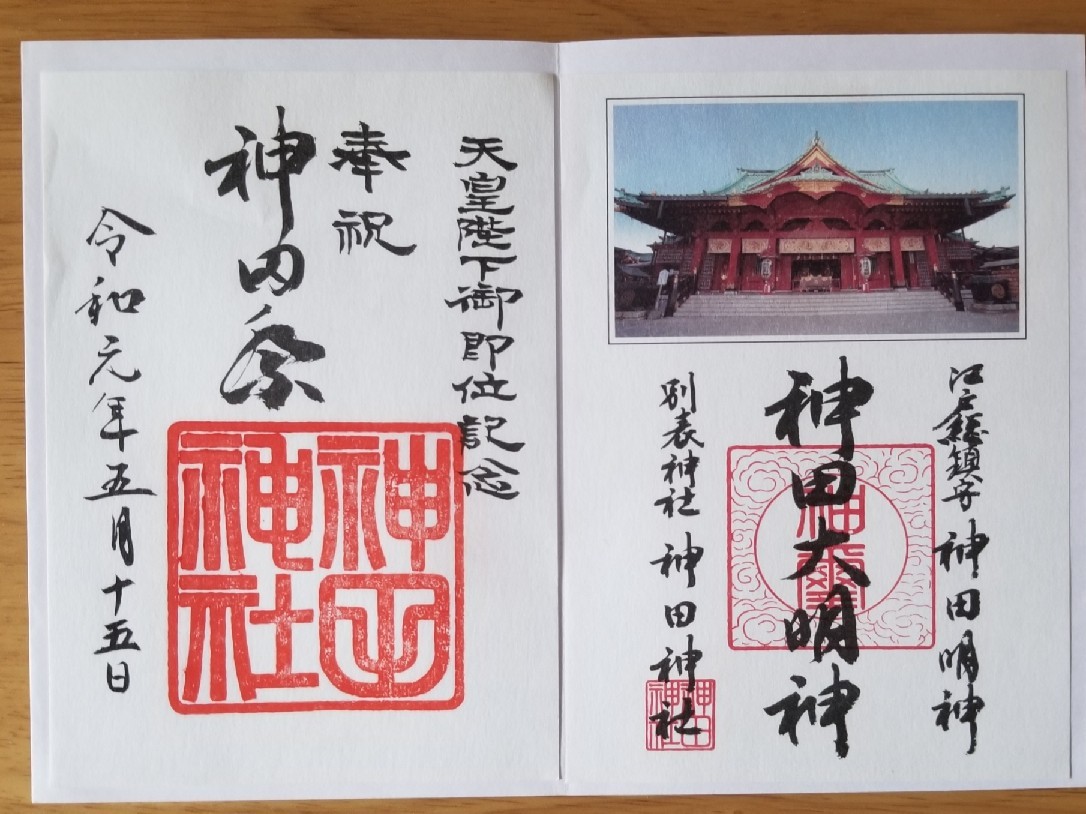 天皇陛下御即位記念
奉祝
神田祭
令和元年五月十五日
神田神社
江戸総鎮守 神田明神
神田大明神
神璽
別表神社 神田神社
神田神社